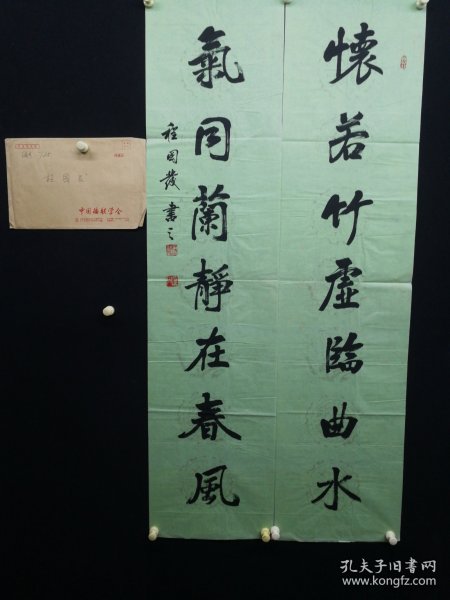 懷若竹虛臨曲水
氣同蘭靜在春風
程國發書之
中国楹联学会
孔夫子旧书网
www.kongfz.com